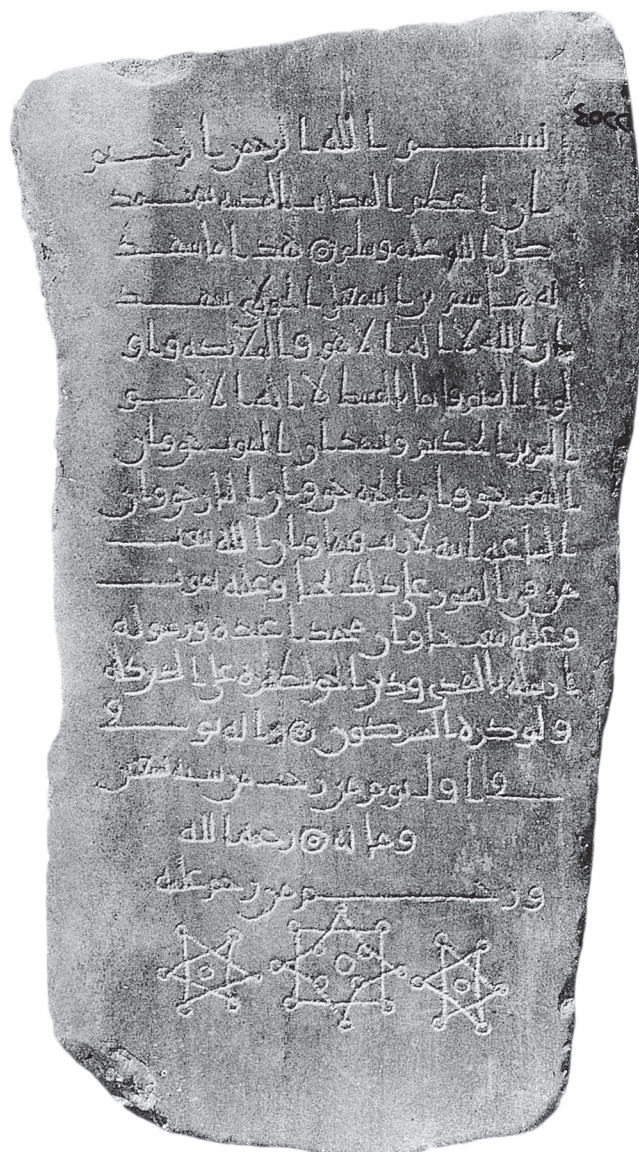 بسم الله الرحمن الرحيم
ان اعظم المصايب المصيبة بمحمد
صلى الله عليه وسلم هذا ما يشهد
به بن اسمعيل الخولاني يشهد
ان الله لا اله الا هو والملائكة واو
لوا العلم قائما بالقسط لا اله الا هو
العزيز الحكيم ويشهد ان الموت حق وان
البعث حق وان الجنة حق وان النار حق وان
الساعة اتية لا ريب فيها وان الله يبعث
من في القبور على ذلك حيا وعليه يموت
وعليه يبعث حيا وان محمدا عبده ورسوله
ارسله بالهدى ودين الحق ليظهره على الدين كله
ولو كره المشركون وانه توفي
في اول يوم من رجب من سنة
وماية رحمة الله
ورحم من رحم عليه